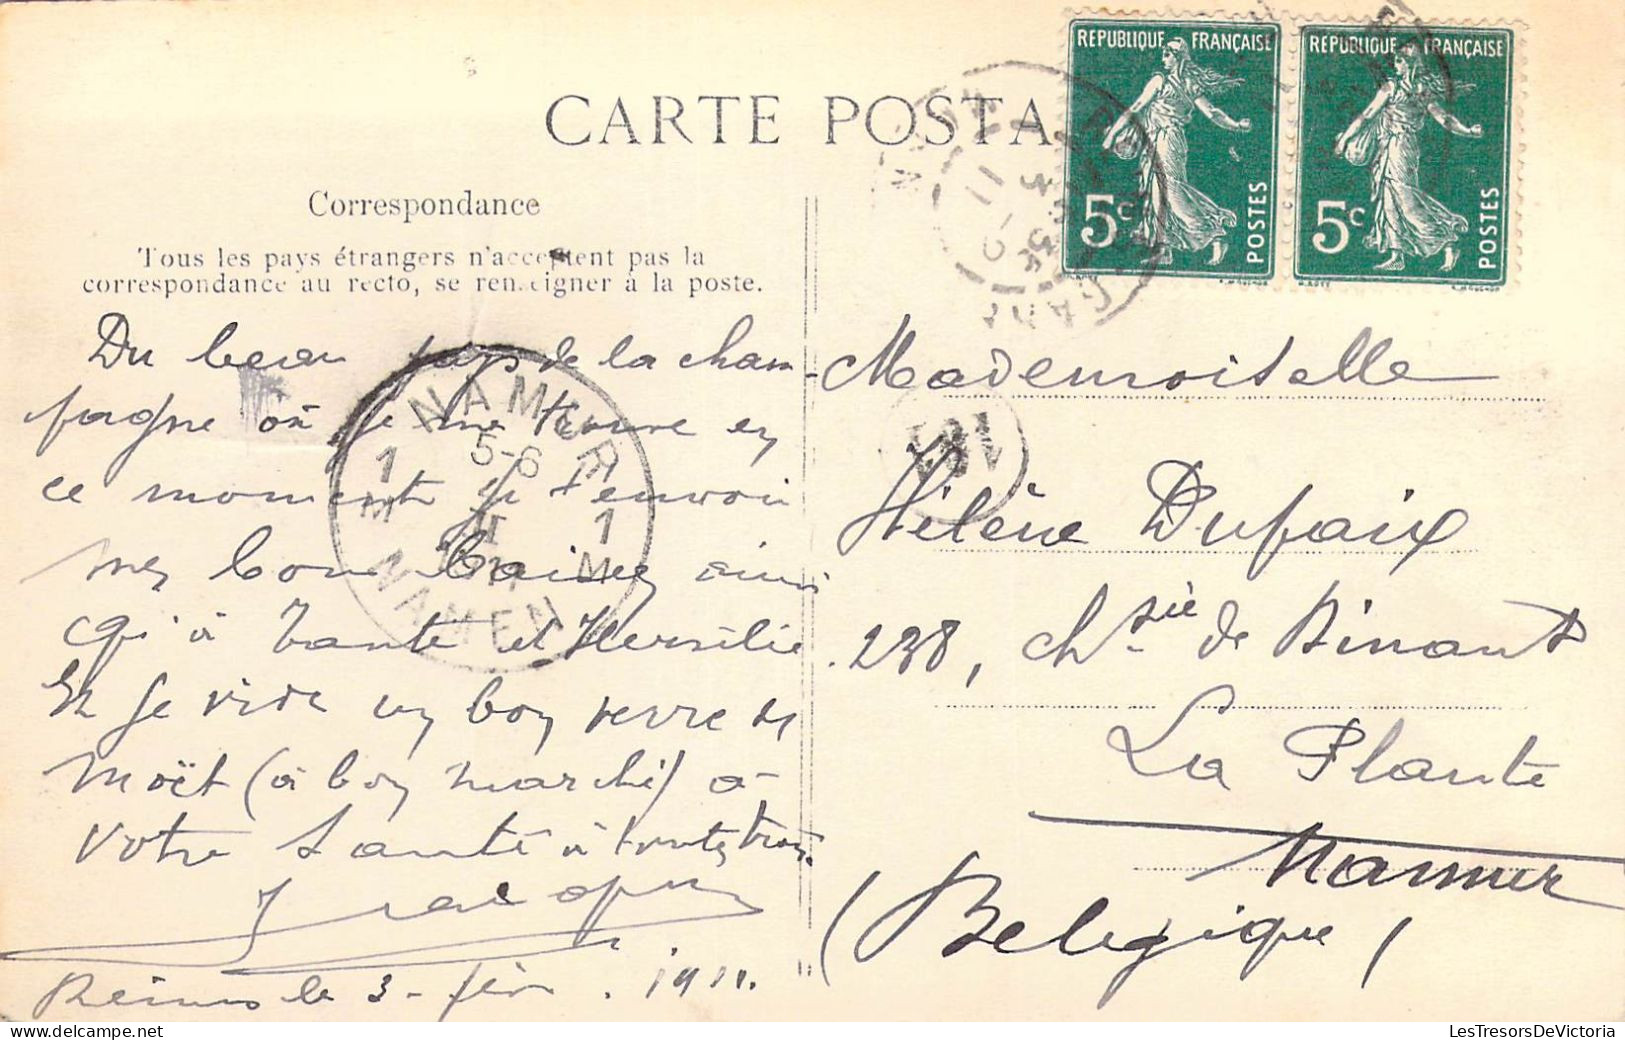 CARTE POSTA
RÉPUBLIQUE FRANÇAISE
5c
POSTES
RÉPUBLIQUE FRANÇAISE
5c
POSTES
Correspondance
Tous les pays étrangers n'acceptent pas la
correspondance au recto, se renseigner à la poste.
Du beau pays de la cham-
pagne où je me trouve en
ce moment je t'envoi
mes bons baisers ainsi
qu'à Tante et Hersilie.
Et je vide un bon verre de
Moët (à bon marché) à
votre santé à toutes trois.
Reims le 3 - fév. 1911.
NAMUR
5-6
1 M
1 M
NAMEN
Mademoiselle
Hélène Dufaix
238, Ch.sée de Dinant
La Plante
Namur
(Belgique)
LesTresorsDeVictoria